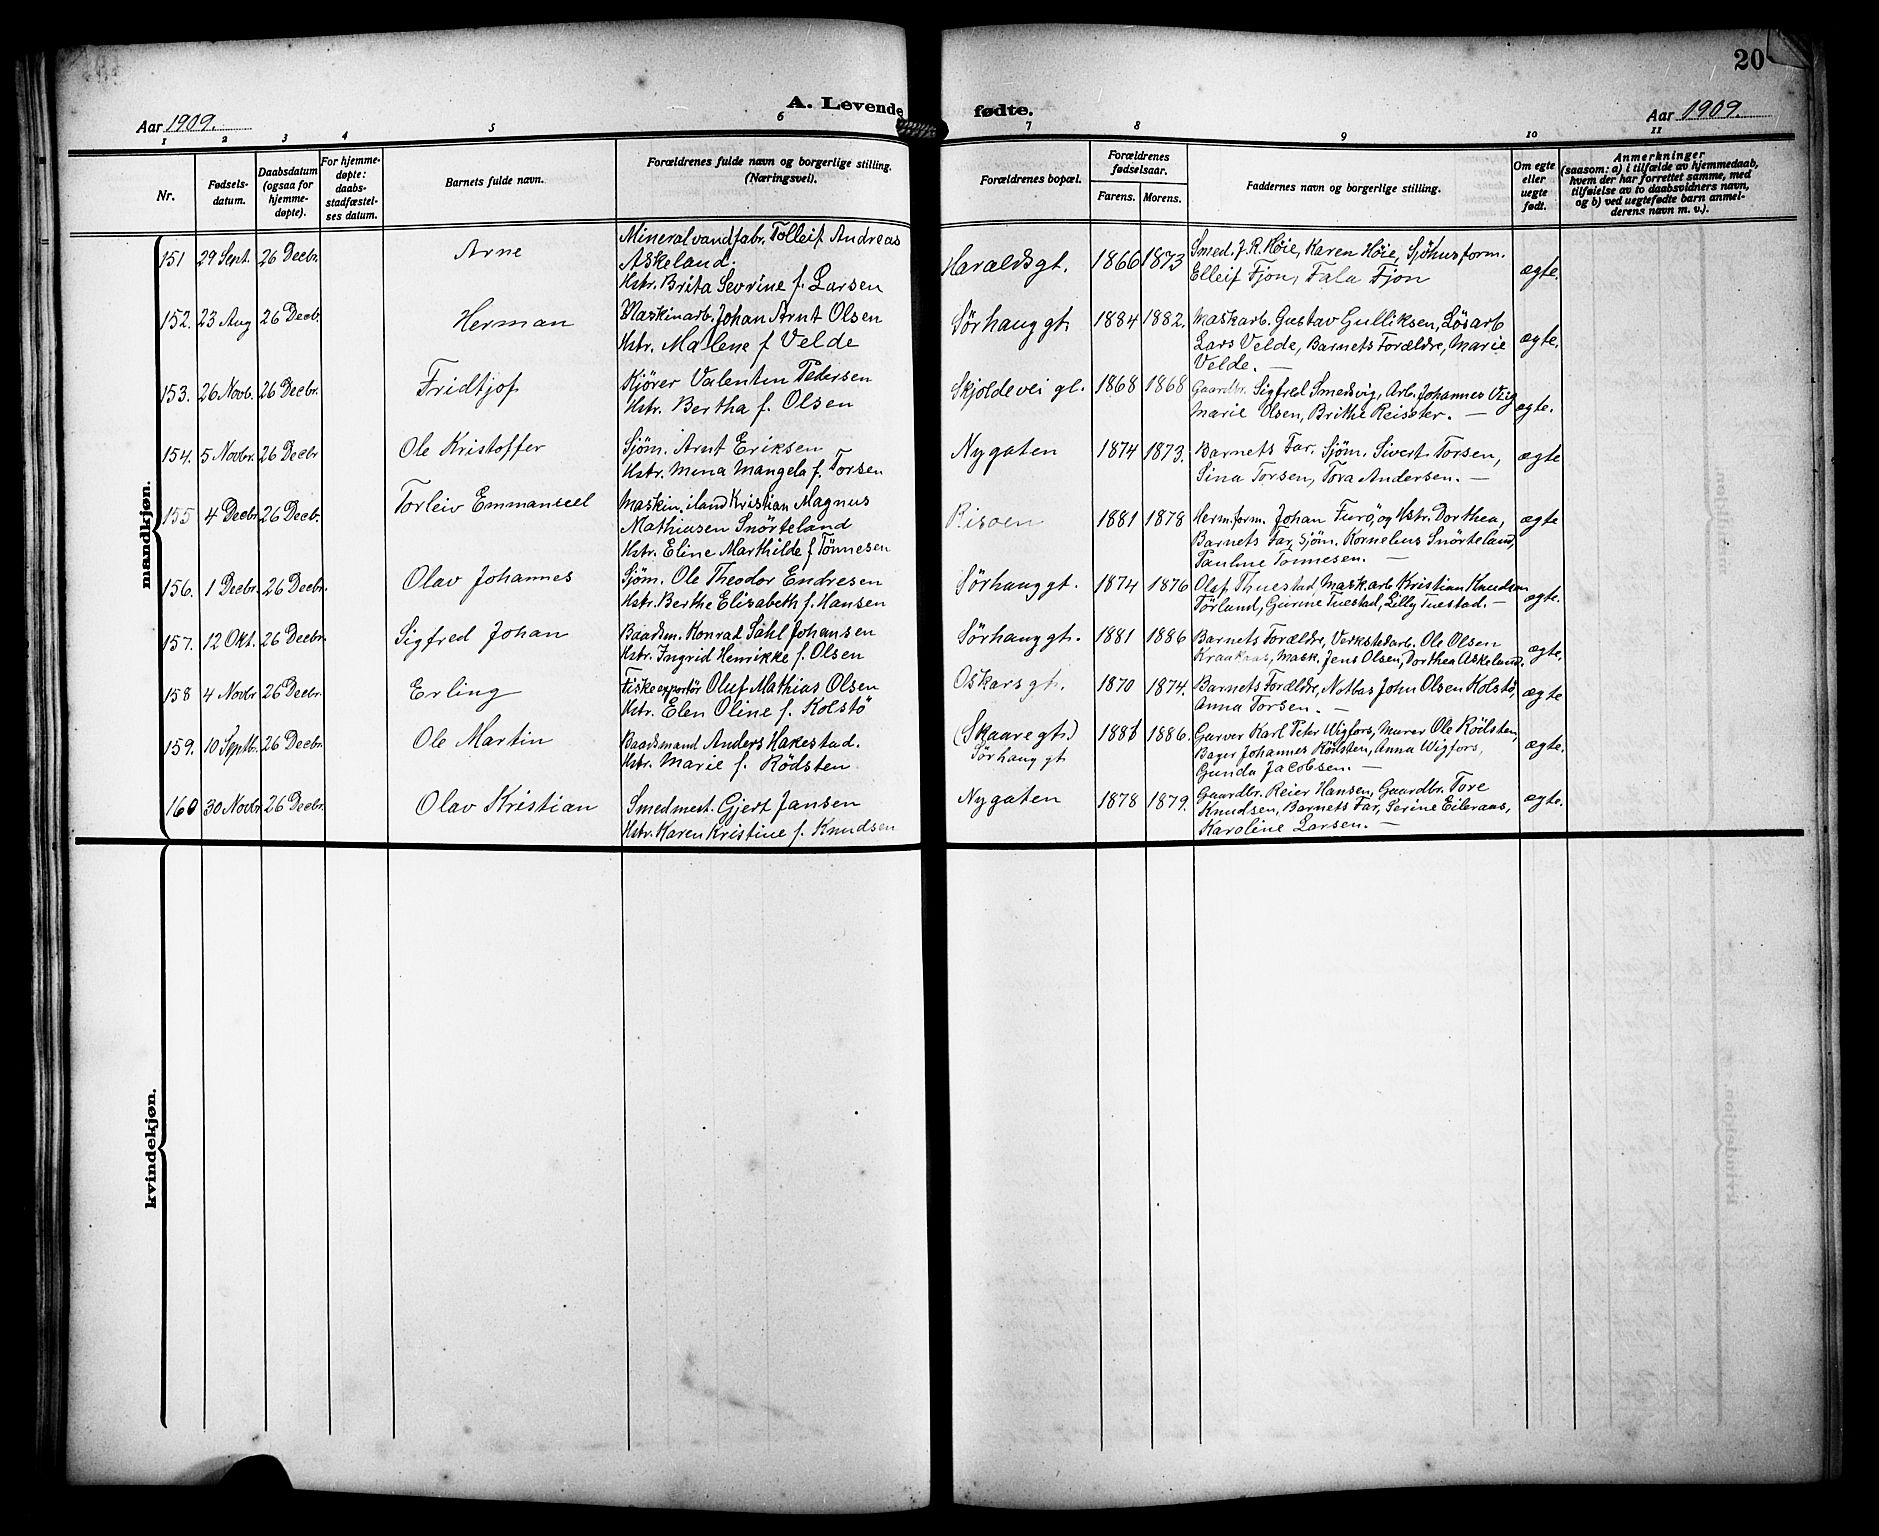 20
A. Levende fødte.
Aar 1909. Aar 1909.
1 2 3 4 5 6 7 8 9 10 11
Nr. Fødselsdatum. Daabsdatum (ogsaa for hjemmedøpte). For hjemmedøpte: daabsstadfæstelses datum. Barnets fulde navn. Forældrenes fulde navn og borgerlige stilling. (Næringsvei). Forældrenes bopæl. Forældrenes fødselsaar. Farens. Morens. Faddernes navn og borgerlige stilling. Om egte eller uegte født. Anmerkninger (saasom: a) i tilfælde av hjemmedaab, hvem der har forrettet samme, med tilføielse av to daabsvidners navn, og b) ved uegtefødte barn anmelderens navn m. v.).
mandkjøn.
151 29 Sept. 26 Decbr. Arne Mineralvandfabr. Tolleif Andreas Haraldsgt. 1866 1873 Smed. J. R. Høie, Karen Høie, Sjøhusform. ægte.
Askeland. Elleif Fjon, Tala Fjon
Hstr. Brita Sevrine f. Larsen
152. 23 Aug 26 Decb. Herman Maskinarb. Johan Arnt Olsen Sørhauggt. 1884 1882. Maskarb. Gustav Gulliksen, Løsarb ægte.
Hstr. Malene f Velde Lars Velde, Barnets Forældre, Marie
Velde. —
153. 26 Novb. 26 Decbr. Fridtjof Kjører Valentin Pedersen Skjoldevei gl. 1868 1868 Gaardbr. Sigfred Smedsvig, Arb. Johannes Vig ægte.
Hstr. Bertha f. Olsen Marie Olsen, Brithe Reiseter. —
154. 5 Novbr. 26 Decbr Ole Kristoffer Sjøm. Arnt Eriksen Nygaten 1874 1873. Barnets Far. Sjøm. Sivert Torsen, ægte
Hstr. Mina Mangela f. Torsen Sina Torsen, Tora Andersen. —
155 4 Decbr. 26 Decb. Torleiv Emmanuel Maskin. iland Kristian Magnus Risøen 1881 1878 Herm.form. Johan Furø, og Hstr. Dorthea, ægte
Mathiasen Snørteland Barnets Far, Sjøm. Kornelius Snørteland,
Hstr. Eline Marthilde f Tønnesen Pauline Tønnesen. —
156. 1 Decbr. 26 Decbr. Olav Johannes Sjøm. Ole Theodor Endresen Sørhauggt. 1874 1876 Olaf Thuestad, Mask.arb Kristian Knudsen ægte.
Hstr. Berthe Elisabeth f. Hansen Førland, Gurine Tuestad, Lilly Tuestad. —
157. 12 Okt. 26 Decbr. Sigfred Johan Baadsm. Konrad Sahl Johansen Sørhauggt. 1881 1886 Barnets Forældre, Verkstedarb. Ole Olsen ægte.
Hstr. Ingrid Henrikke f. Olsen Kraakaas, Mask. Jens Olsen, Dorthea Askeland.
158 4 Novbr 26 Decbr. Erling Fiskeexportör Oluf Mathias Olsen Oskarsgt. 1870 1874. Barnets Forældre, Notbas John Olsen Kolstø, ægte
Hstr. Elen Oline f. Kolstø Anna Torsen. —
159. 10 Septbr. 26 Decbr. Ole Martin Baadsmand Anders Hakestad. (Skaaregt.) 1886. Garver Karl Peter Wigfors, Murer Ole Rødsten, ægte.
Hstr. Marie f. Rødsten Sørhauggt Bager Johannes Rødsten, Anna Wigfors,
Gunda Jacobsen. —
160 30 Novbr 26 Decbr. Olav Kristian Smedmest. Gjert Jansen Nygaten 1878 1879. Gaardbr. Reier Hansen, Gaardbr. Tore ægte.
Hstr. Karen Kristine f. Knudsen Knudsen, Barnets Far, Serine Eileraas,
Karoline Larsen. —
kvindekjøn.